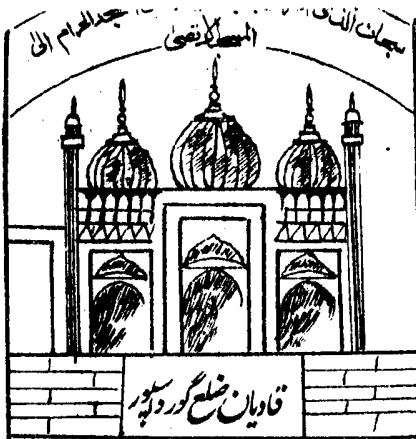 سبحان الذی المسجد الحرام الی
المسجد الاقصیٰ
قادیان ضلع گورداسپور